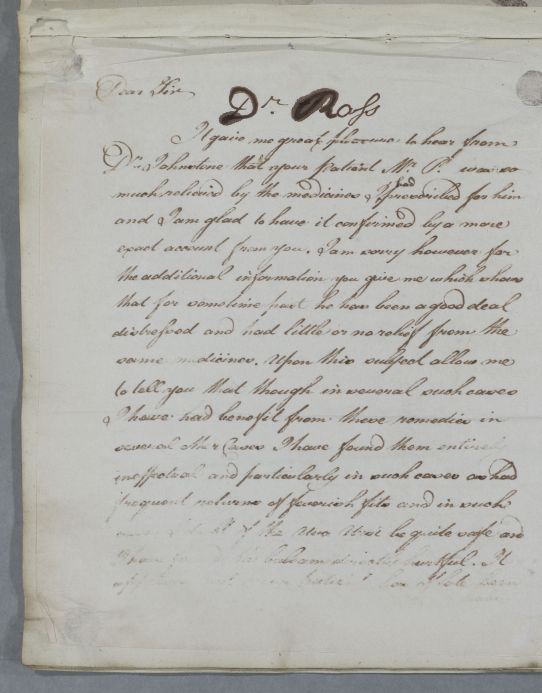 Dear Sir
Dr. Ross
It gave me great pleasure to hear from
Dr. Johnstone that your patient Mr. P. was so
much relieved by the medicines I had prescribed for him
and I am glad to have it confirmed by a more
exact account from you. I am sorry however for
the additional information you give me which shows
that for sometime past he has been a good deal
distressed and had little or no relief from the
same medicines. Upon this subject allow me
to tell you that though in several such cases
I have had benefit from these remedies in
several other Cases I have found them entirely
ineffectual and particularly in such cases as had
frequent returns of feverish fits and in such
of the Uva Ursi be quite safe and
I have found the balsam directly hurtful. It
patient has of late been